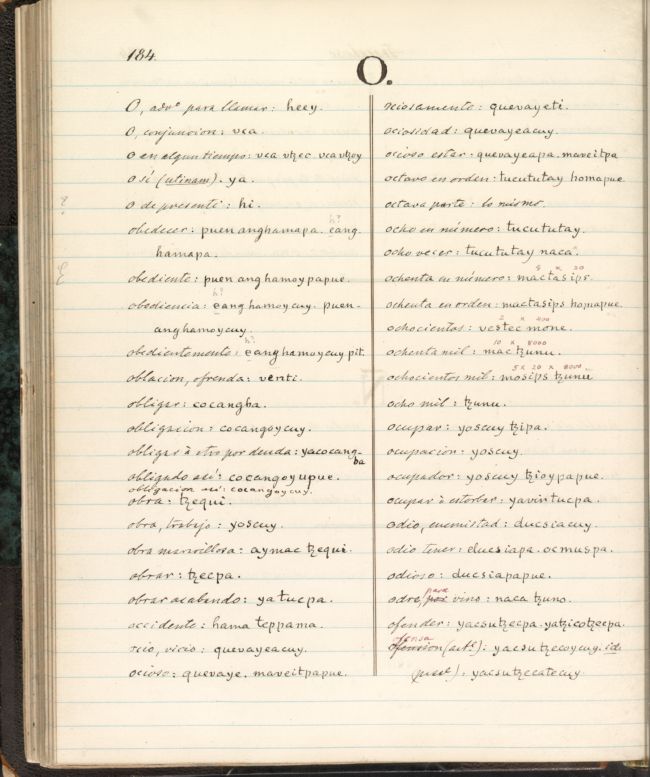 184.
O.
O, adv.º para llamar: heey.
O, conjuncion: vca
O en algun tiempo: vca vtzec vcavtzoy
O si (utinam). ya.
O de presenti: hi.
obedecer: puen anghamapa. eang-
hamapa.
obediente: puen anghamoypapue.
h?
obediencia: eanghamoycuy. puen-
anghamoycuy.
h?
obedientemente: eanghamoycuy pit.
oblacion, ofrenda: venti.
obligar: cocangba.
obligacion: cocangoycuy.
obligar à otro por deuda: yacocang-
ba
obligado asi: cocangoyupue.
obligacion asi: cocangoycuy.
obra: tzequi.
obra, trabajo: yoscuy.
obra maravillosa: aymac tzequi.
obrar: tzecpa.
obrar acabando: yatucpa.
accidente: hama teppama.
ocio, vicio: quevayeacuy.
ocioso: quevaye. maveitpapue.
ociosamente: quevayeti.
ociosidad: quevayeacuy.
ocioso estar: quevayeapa. maveitpa
octavo en orden: tucututay homapue
octava parte: lo mismo.
ocho en número: tucututay.
ocho veces: tucututay naca.
5 x 20
ochenta en número: mactasips.
ochenta en orden: mactasips homapue.
2 x 400
ochocientos: vestec mone.
10 x 8000
ochenta mil: mac tzunu.
5 x 20 x 8000
ochocientos mil: mosips tzunu
ocho mil: tzunu.
ocupar: yoscuy tzipa.
ocupacion: yoscuy.
ocupador: yoscuy tzioypapue.
ocupar ò estorbar: yavintucpa.
odio, enemistad: ducsiacuy.
odio tener: ducsiapa. ocmuspa.
odioso: ducsiapapue.
para
odre, por vino: naca tzuno.
ofender: yacsutzecpa. yatzicotzecpa.
ofensa
ofension (act.ª): yacsutzecoycuy. id:
(pas.ª): yacsutzecatecuy